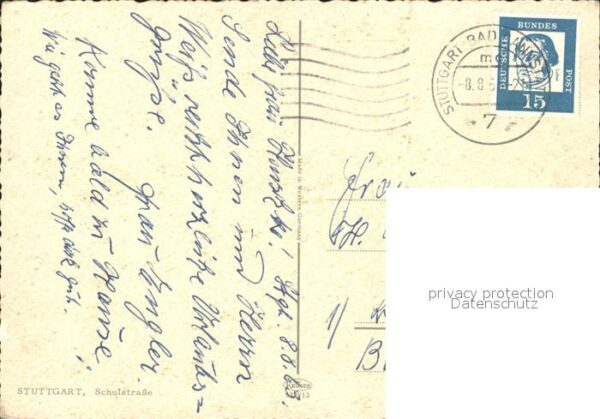 Liebe Frau Kunszt! Stgt. 8.8.63.
Sende Ihnen und Herrn
Weiß recht herzliche Urlaubs=
grüße. Frau Engler.
Komme bald zu Hause.
Wie geht es Ihnen, hoffe doch gut.
STUTTGART, Schulstraße
Made in Western Germany
STUTTGART BAD
-8.8.
7
DEUTSCHE
BUNDES
POST
15
Frau
1/
B
privacy protection
Datenschutz